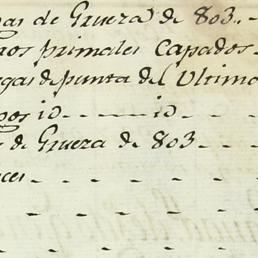 as de Grueza de 803..
nos primales Capados.
egas de punta del Ultimo
pos id - - - - id - - -
s de Grueza de 803 - - -
ces - - - - - - -